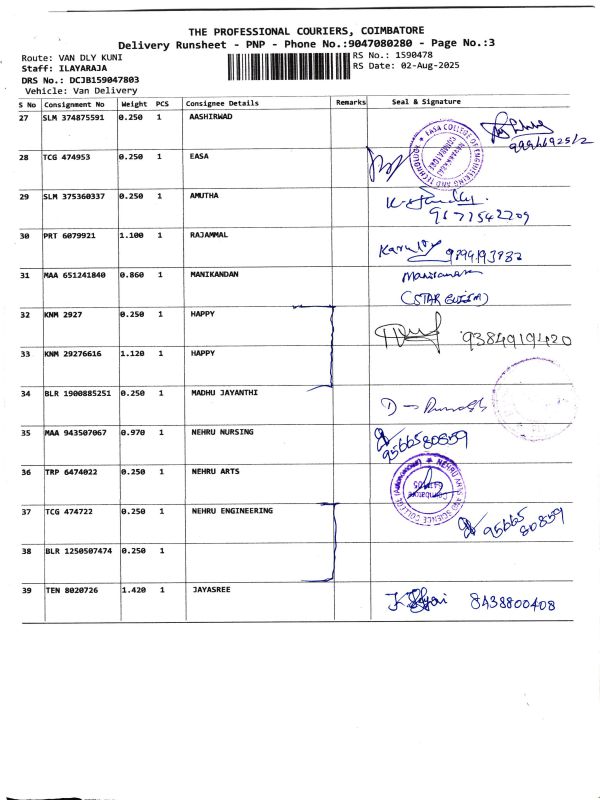 THE PROFESSIONAL COURIERS, COIMBATORE
Delivery Runsheet - PNP - Phone No.:9047080280 - Page No.:3
Route: VAN DLY KUNI
RS No.: 1590478
Staff: ILAYARAJA
RS Date: 02-Aug-2025
DRS No.: DCJB159047803
Vehicle: Van Delivery
S No Consignment No Weight PCS Consignee Details Remarks Seal & Signature
27 SLM 374875591 0.250 1 AASHIRWAD
28 TCG 474953 0.250 1 EASA
EASA COLLEGE OF ENGINEERING AND TECHNOLOGY
29 SLM 375360337 0.250 1 AMUTHA
9677542209
30 PRT 6079921 1.100 1 RAJAMMAL
31 MAA 651241840 0.860 1 MANIKANDAN
32 KNM 2927 0.250 1 HAPPY
9384919420
33 KNM 29276616 1.120 1 HAPPY
34 BLR 1900885251 0.250 1 MADHU JAYANTHI
35 MAA 943507067 0.970 1 NEHRU NURSING
9566580859
36 TRP 6474022 0.250 1 NEHRU ARTS
NEHRU ARTS AND SCIENCE COLLEGE (Autonomous)
Coimbatore
37 TCG 474722 0.250 1 NEHRU ENGINEERING
95665
80859
38 BLR 1250507474 0.250 1
39 TEN 8020726 1.420 1 JAYASREE
8438800408